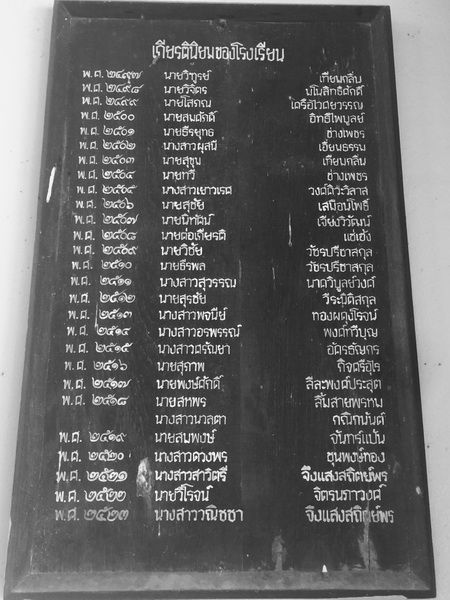 เกียรตินิยมของโรงเรียน
พ.ศ. ๒๔๙๗ นายวิฑูรย์ เทียมกลิ่น
พ.ศ. ๒๔๙๘ นายวิจิตร มโนสิทธิศักดิ์
พ.ศ. ๒๔๙๙ นายโสภณ เครือไวศยวรรณ
พ.ศ. ๒๕๐๐ นายสมศักดิ์ อิทธิไพบูลย์
พ.ศ. ๒๕๐๑ นายธีรยุทธ ช่างเพชร
พ.ศ. ๒๕๐๒ นางสาวผุสนี เอี่ยมธรรม
พ.ศ. ๒๕๐๓ นายสุขุม เทียบกลิ่น
พ.ศ. ๒๕๐๔ นายทวี ช่างเพชร
พ.ศ. ๒๕๐๕ นางสาวเยาวเรศ วงศ์ติวะวิลาส
พ.ศ. ๒๕๐๖ นายสุชัย เสมือนโพธิ์
พ.ศ. ๒๕๐๗ นายนิทัศน์ เจียงวิวัฒน์
พ.ศ. ๒๕๐๘ นายต่อเกียรติ แซ่เฮ้ง
พ.ศ. ๒๕๐๙ นายวิชัย วัชรปรีชาสกุล
พ.ศ. ๒๕๑๐ นายธีรพล วัชรปรีชาสกุล
พ.ศ. ๒๕๑๑ นางสาวสุวรรณ นาควิบูลย์วงศ์
พ.ศ. ๒๕๑๒ นายสุรชัย วีระนิติสกุล
พ.ศ. ๒๕๑๓ นางสาวพจนีย์ ทองผดุงโรจน์
พ.ศ. ๒๕๑๔ นางสาวอรพรรณ์ พงศ์ทวีบุญ
พ.ศ. ๒๕๑๕ นางสาวดรัณยา อัครธัญกร
พ.ศ. ๒๕๑๖ นายสุภาพ กิจศรีอุไร
พ.ศ. ๒๕๑๗ นายพงษ์ศักดิ์ ลีละพงศ์ประสุต
พ.ศ. ๒๕๑๘ นายสหพร ลิ้มสายพรหม
นางสาวนาลตา คณิกนันต์
พ.ศ. ๒๕๑๙ นายสมพงษ์ จันทร์แป้น
พ.ศ. ๒๕๒๐ นางสาวดวงพร ชุนพงษ์ทอง
พ.ศ. ๒๕๒๑ นางสาวสาวิตรี จึงแสงสถิตย์พร
พ.ศ. ๒๕๒๒ นายวิโรจน์ จิตรนภาวงศ์
พ.ศ. ๒๕๒๓ นางสาววณิชชา จึงแสงสถิตย์พร